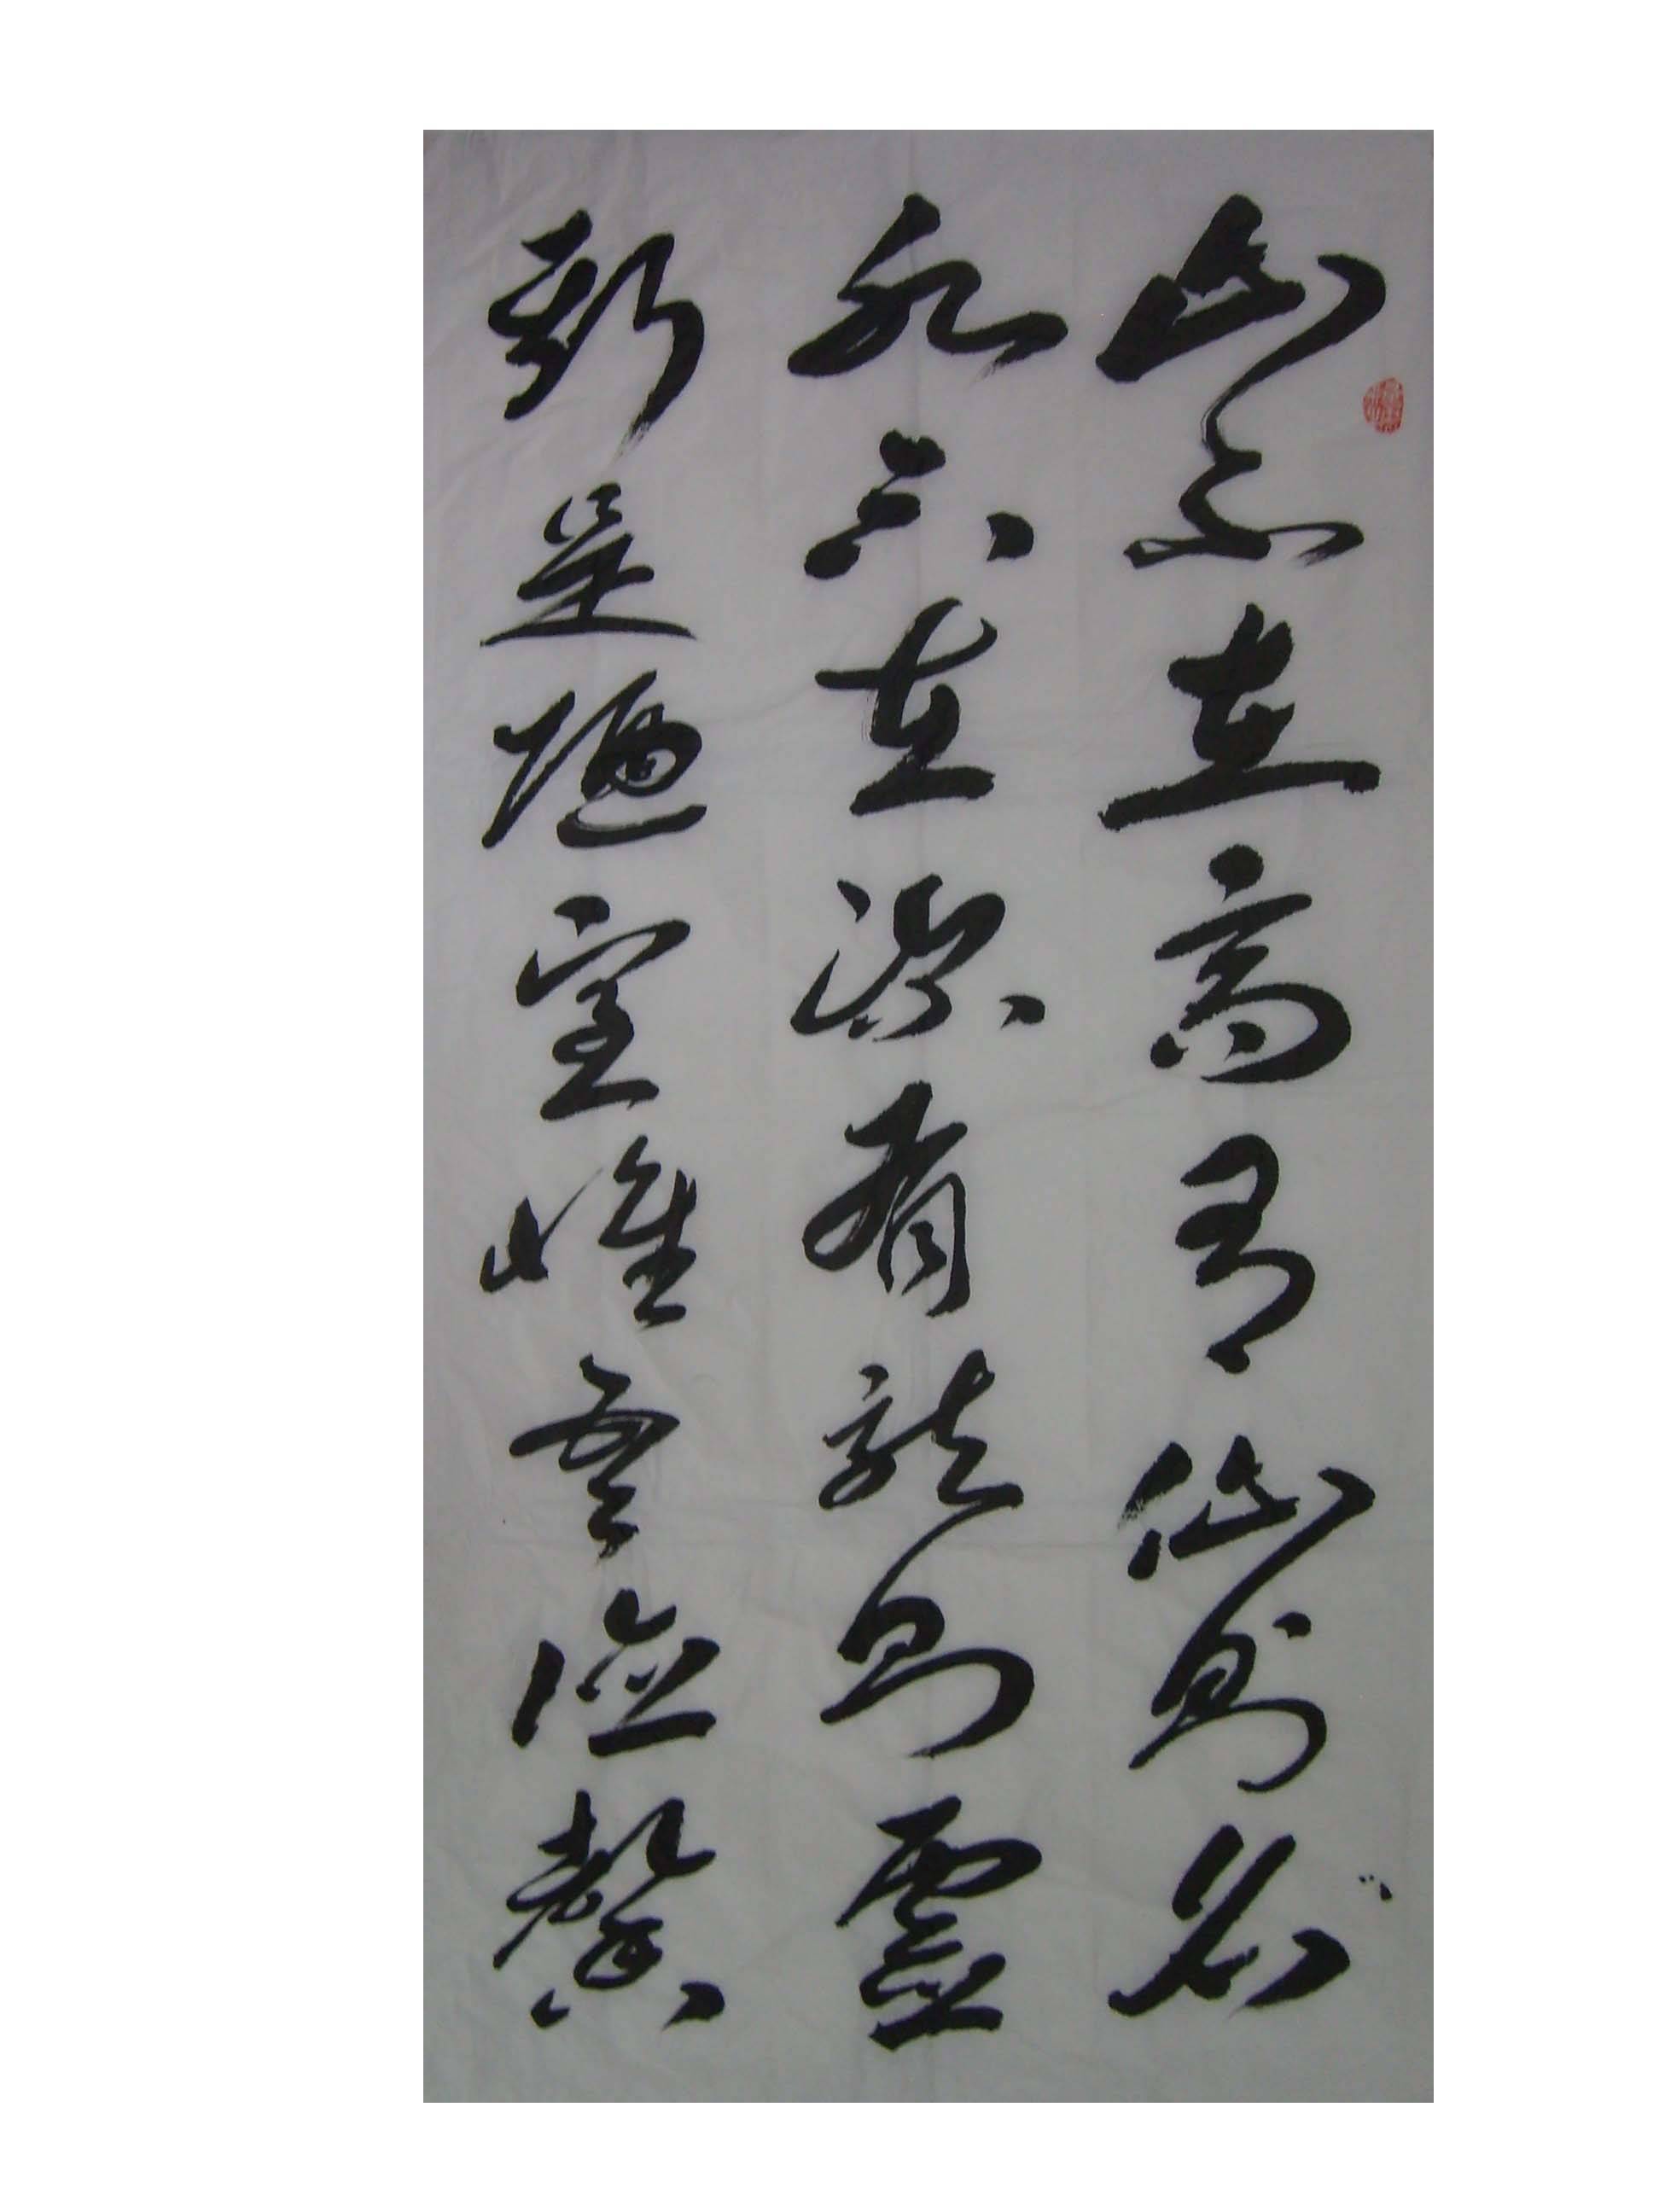 山不在高有仙則名
水不在深有龍則靈
斯是陋室惟吾德馨